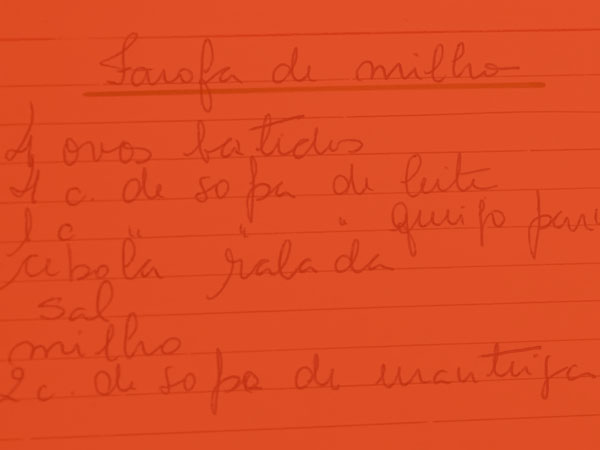 Farofa de milho
4 ovos batidos
4 c. de sopa de leite
1 c " " " queijo
cebola ralada
sal
milho
2 c. de sopa de manteiga